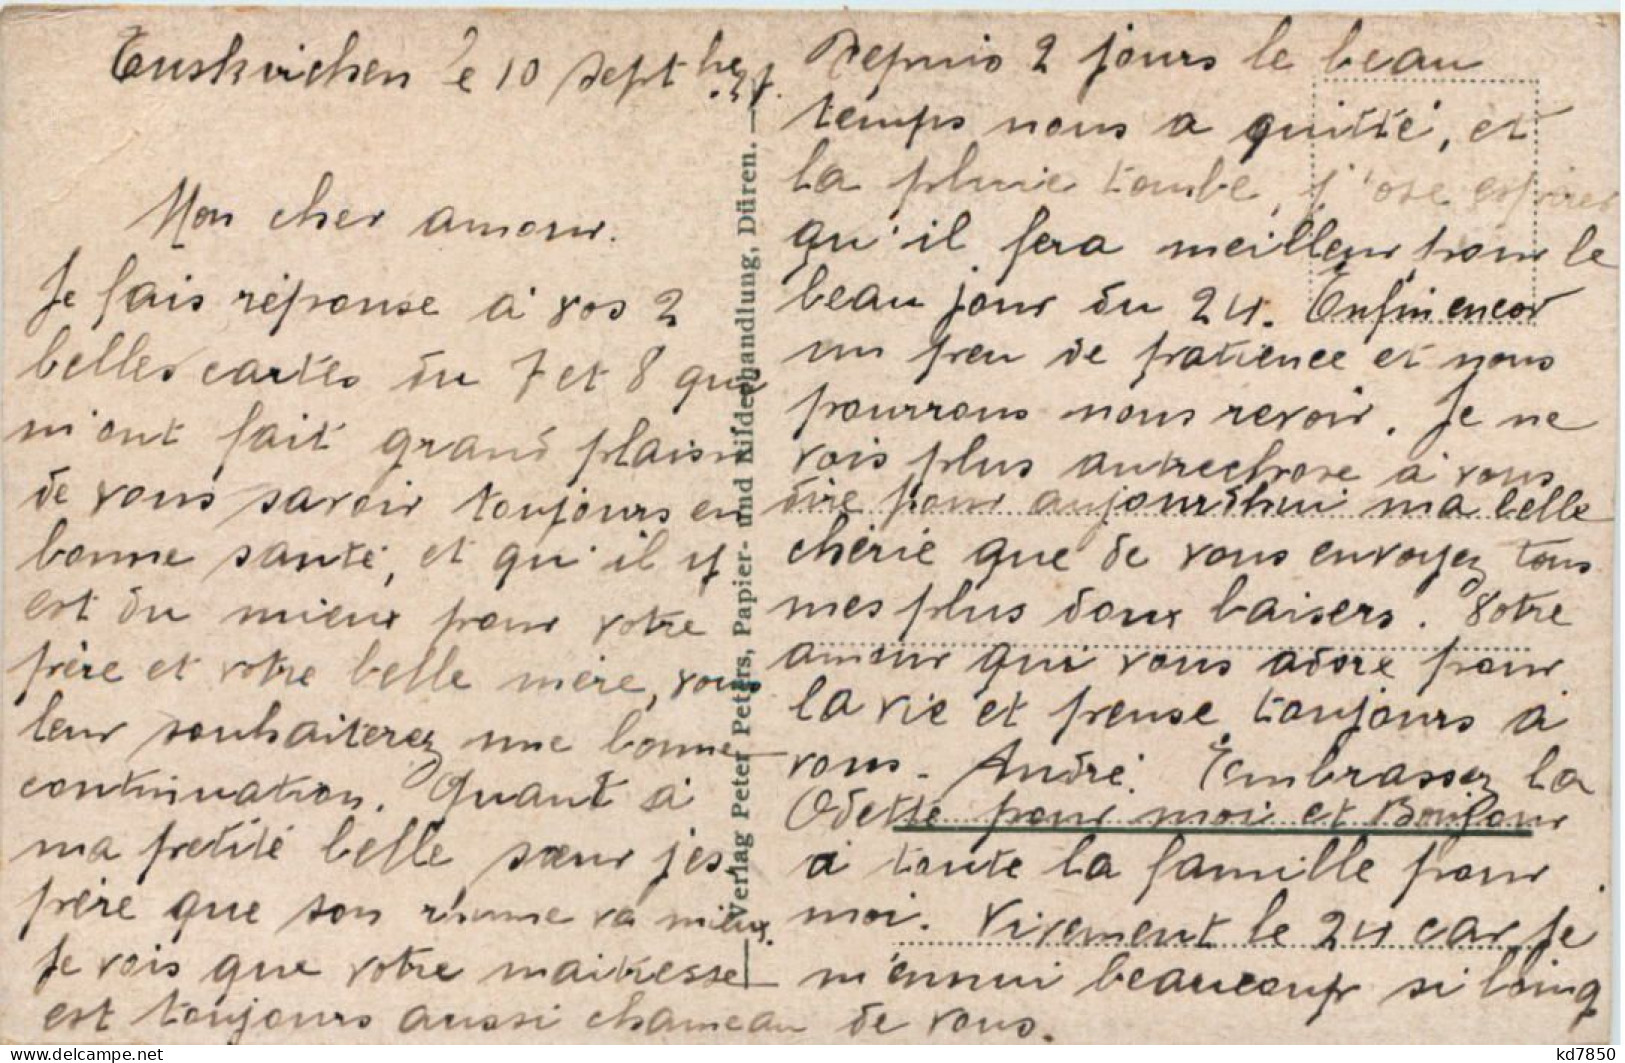 Euskirchen le 10 septbre 27.
Mon cher amour.
Je fais réponse à vos 2
belles cartes du 7 et 8 qui
m'ont fait grand plaisir
de vous savoir toujours en
bonne santé, et qu'il y
est du mieux pour votre
frère et votre belle mère, vous
leur souhaiterez une bonne
continuation. Quant à
ma petite belle sœur j'es
père que son rhume va mieux.
Je vois que votre maitresse
est toujours aussi chameau
Verlag Peter Peters, Papier- und Bilderhandlung, Düren.
Depuis 2 jours le beau
temps nous a quitté, et
la pluie tombe, j'ose espérer
qu'il fera meilleur pour le
beau jour du 24. Enfin encor
un peu de patience et nous
pourrons nous revoir. Je ne
vois plus autrechose à vous
dire pour aujourdhui ma belle
chérie que de vous envoyez tous
mes plus doux baisers. Votre
amour qui vous adore pour
la vie et pense toujours à
vous. André. Embrassez la
Odette pour moi et Bonjour
à toute la famille pour
moi. Vivement le 24 car je
m'ennui beaucoup si loing
de vous.
kd7850